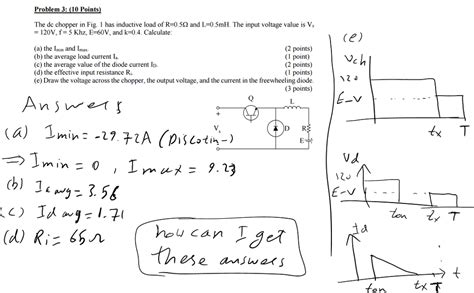 Problem 3: (10 Points)
The dc chopper in Fig. 1 has inductive load of R=0.5Ω and L=0.5mH. The input voltage value is Vs
= 120V, f = 5 Khz, E=60V, and k=0.4. Calculate:
(a) the Imin and Imax. (2 points)
(b) the average load current Ia. (1 point)
(c) the average value of the diode current ID. (2 points)
(d) the effective input resistance Ri. (1 points)
(e) Draw the voltage across the chopper, the output voltage, and the current in the freewheeling diode.
(3 points)
Q
L
+
Vs
D
R
E
-
Answers
(a) Imin = -29.72A (Discotin-)
⇒ Imin = 0, Imax = 9.23
(b) Ia avg = 3.56
(c) Id avg = 1.71
(d) Ri = 65Ω
how can I get
these answers
(e)
Vch
120
E-V
tx T
Vd
120
E-V
ton tx T
Id
t
ton tx T